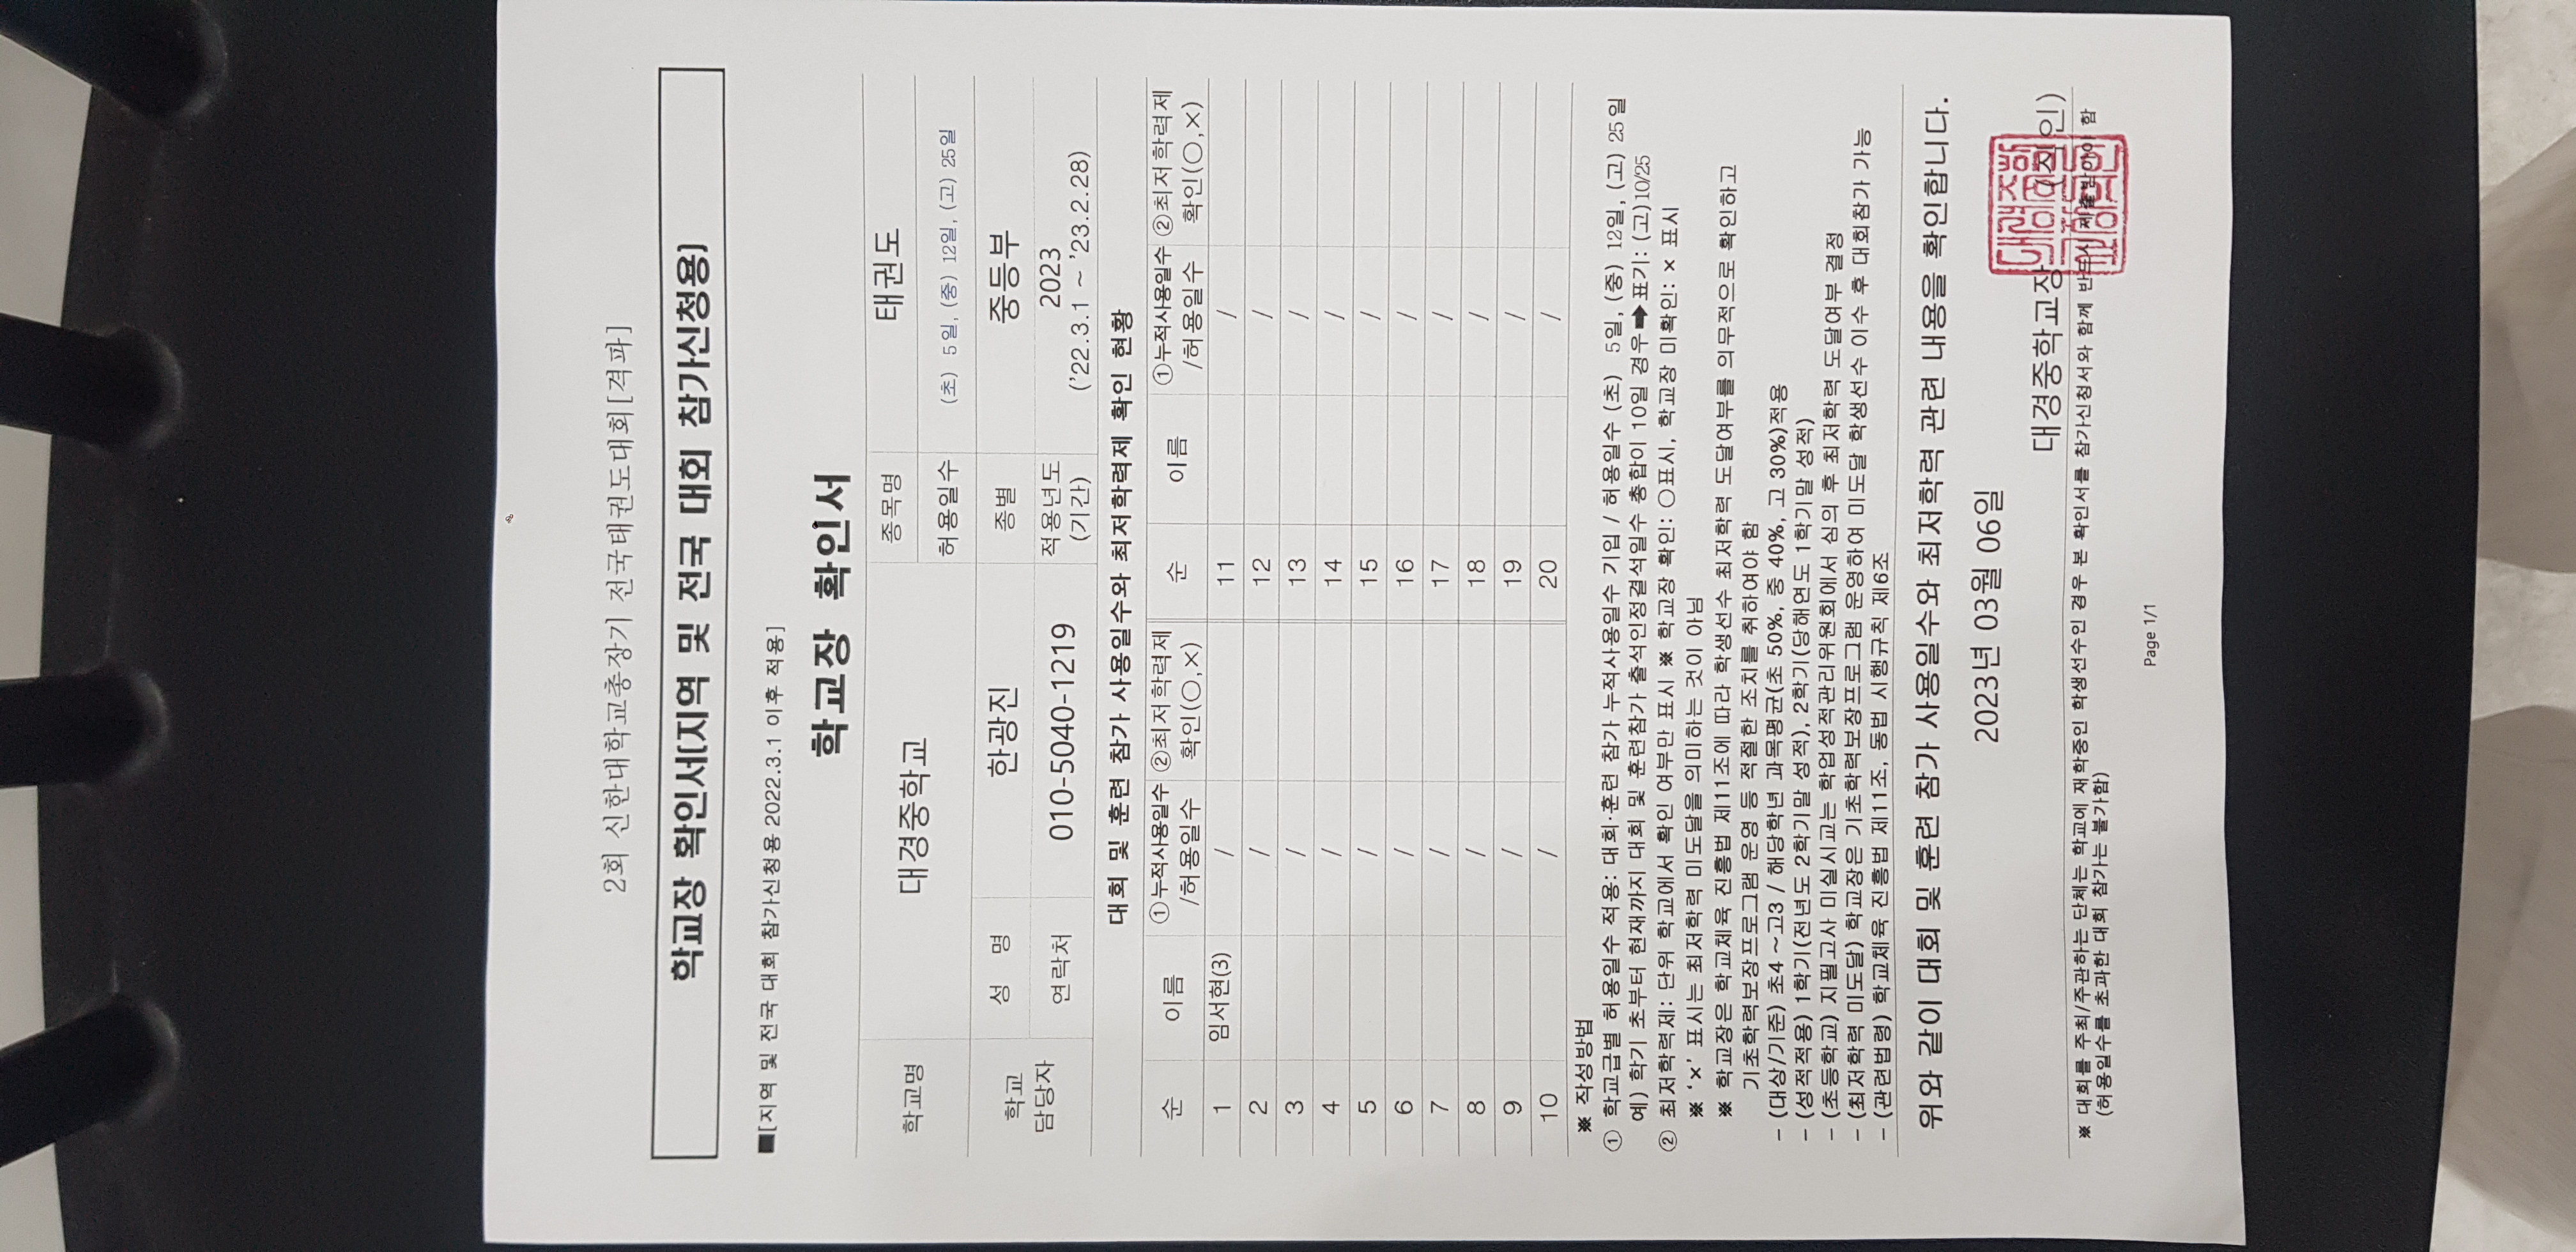 2회 신한대학교총장기 전국태권도대회[격파]
학교장 확인서[지역 및 전국 대회 참가신청용]
■[지역 및 전국 대회 참가신청용 2022.3.1 이후 적용]
학교장 확인서
학교명 대경중학교 종목명 태권도
허용일수 (초) 5일, (중) 12일, (고) 25일
학교 담당자 성 명 한광진 종별 중등부
연락처 010-5040-1219 적용년도 (기간) 2023 ('22.3.1 ~ '23.2.28)
대회 및 훈련 참가 사용일수와 최저학력제 확인 현황
순 이름 ①누적사용일수 /허용일수 ②최저학력제 확인(○,×) 순 이름 ①누적사용일수 /허용일수 ②최저학력제 확인(○,×)
1 임서현(3) / 11 /
2 / 12 /
3 / 13 /
4 / 14 /
5 / 15 /
6 / 16 /
7 / 17 /
8 / 18 /
9 / 19 /
10 / 20 /
※ 작성방법
① 학교급별 허용일수 적용: 대회·훈련 참가 누적사용일수 기입 / 허용일수 (초) 5일, (중) 12일, (고) 25일
예) 학기 초부터 현재까지 대회 및 훈련참가 출석인정결석일수 총합이 10일 경우➡표기: (고)10/25
② 최저학력제: 단위 학교에서 확인 여부만 표시 ※ 학교장 확인: ○표시, 학교장 미확인: × 표시
※ '×' 표시는 최저학력 미도달을 의미하는 것이 아님
※ 학교장은 학교체육 진흥법 제11조에 따라 학생선수 최저학력 도달여부를 의무적으로 확인하고
기초학력보장프로그램 운영 등 적절한 조치를 취하여야 함
- (대상/기준) 초4~고3 / 해당학년 과목평균(초 50%, 중 40%, 고 30%)적용
- (성적적용) 1학기(전년도 2학기말 성적), 2학기(당해연도 1학기말 성적)
- (초등학교) 지필고사 미실시교는 학업성적관리위원회에서 심의 후 최저학력 도달여부 결정
- (최저학력 미도달) 학교장은 기초학력보장프로그램 운영하여 미도달 학생선수 이수 후 대회참가 가능
- (관련법령) 학교체육 진흥법 제11조, 동법 시행규칙 제6조
위와 같이 대회 및 훈련 참가 사용일수와 최저학력 관련 내용을 확인합니다.
2023년 03월 06일
대경중학교장 (직인)
※ 대회를 주최/주관하는 단체는 학교에 재학중인 학생선수인 경우 본 확인서를 참가신청서와 함께 반드시 제출받아야 함
(허용일수를 초과한 대회 참가는 불가함)
Page 1/1